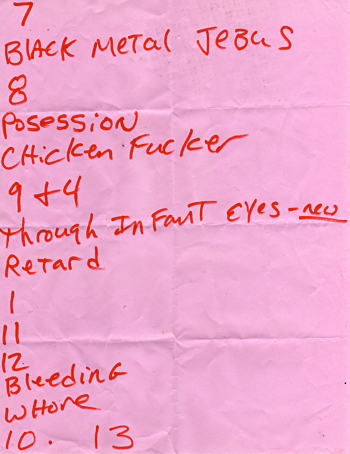 7
BLACK METAL JEBUS
8
POSESSION
CHicken Fucker
9 + 4
Through InFanT EYES - new
Retard
1
11
12
Bleeding
WHore
10. 13